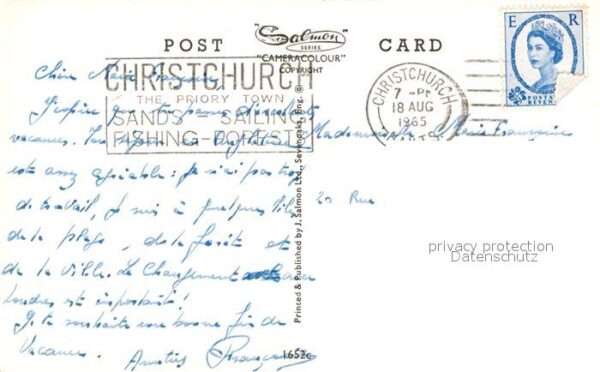 POST "Salmon" SERIES CARD
"CAMERACOLOUR"
COPYRIGHT
E R
POSTAGE
REVENUE
CHRISTCHURCH
THE PRIORY TOWN
SANDS SAILING
FISHING-FOREST
CHRISTCHURCH
7-PM
18 AUG
1965
HANTS
Chère Marie Françoise
J'espère que tu passes de
vacances. Mon séjour en Angleterre
est assez agréable: Je n'ai pas trop
de travail, Je suis à quelques
de la plage, de la forêt et
de la ville. Le changement avec
Londres est important!
Je te souhaite une bonne fin de
Vacances. Amitiés Françoise
Mademoiselle Marie Françoise
20 Rue
Printed & Published by J. Salmon Ltd., Sevenoaks, Eng. ©
1652c
privacy protection
Datenschutz